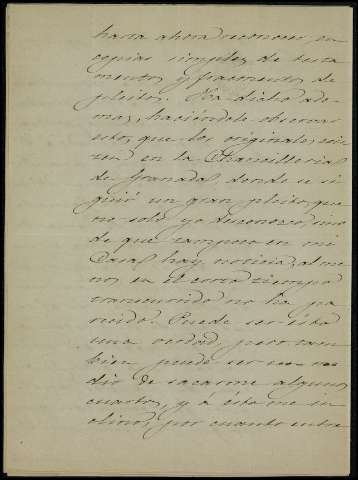 hasta ahora reconocer, en
copias simples de testa
mentos y fracmentos de
pleitos. Ha dicho ade
mas, haciéndole observar
esto, que los originales exis
ten en la Chancilleria
de Granada, donde se si
guió un gran pleito, que
no solo yo desconozco, sino
de que tampoco en mi
Casa hay noticia, al me
nos en el corto tiempo
transcurrido no ha pa
recido. Puede ser ésta
una verdad, pero tam
bien puede ser un me
dio de sacarme algunos
cuartos, y á ésto me in
clino, por cuanto entre